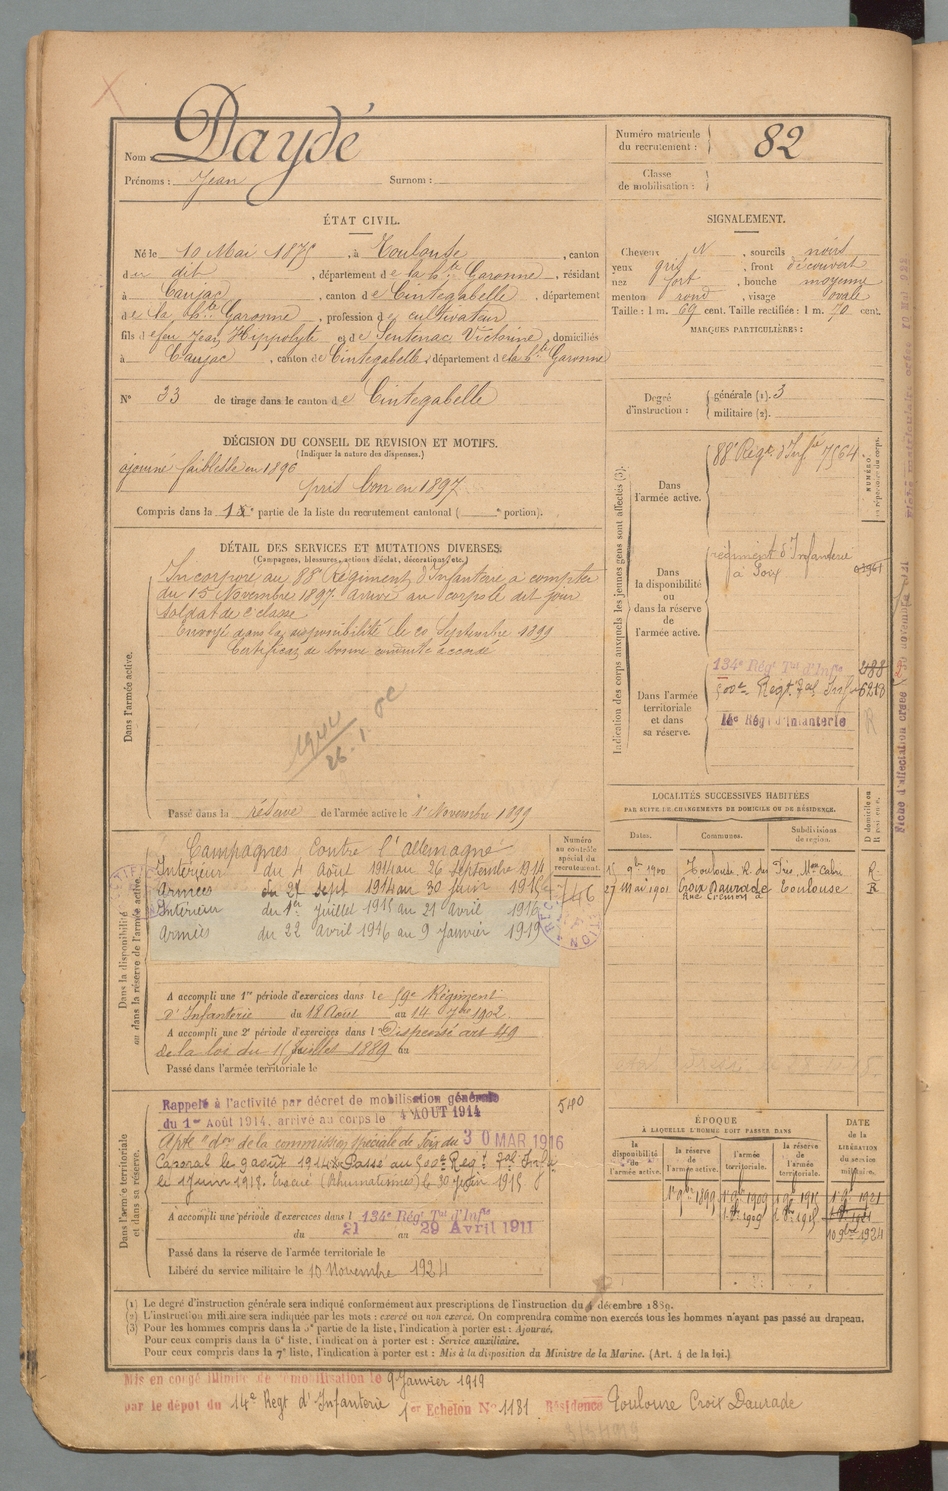 Daydé
Nom
Prénoms : Jean Surnom :
Numéro matricule du recrutement : 82
Classe de mobilisation :
ÉTAT CIVIL.
Né le 10 Mai 1875, à Toulouse, canton
du dit, département de la hte Garonne, résidant
à Caujac, canton de Cintegabelle, département
de la hte Garonne, profession de cultivateur
fils de feu Jean, Hippolyte et de Sentenac Victorine, domiciliés
à Caujac, canton de Cintegabelle, département de la hte Garonne
N° 33 de tirage dans le canton de Cintegabelle
SIGNALEMENT.
Cheveux N, sourcils noirs
yeux gris, front découvert
nez fort, bouche moyenne
menton rond, visage ovale
Taille : 1 m. 69 cent. Taille rectifiée : 1 m. 70 cent.
MARQUES PARTICULIÈRES :
Degré d'instruction : générale (1). 3
militaire (2).
DÉCISION DU CONSEIL DE REVISION ET MOTIFS.
(Indiquer la nature des dispenses.)
ajourné faiblesse en 1896
pris bon en 1897
Compris dans la 1e partie de la liste du recrutement cantonal ( e portion).
DÉTAIL DES SERVICES ET MUTATIONS DIVERSES.
(Campagnes, blessures, actions d'éclat, décorations, etc.)
Dans l'armée active.
Incorporé au 88e Régiment d'Infanterie à compter
du 15 Novembre 1897. Arrivé au corps le dit jour
soldat de 2e classe
Envoyé dans la disponibilité le 20 Septembre 1899
Certificat de bonne conduite accordé
Passé dans la réserve de l'armée active le 1er Novembre 1899
Indication des corps auxquels les jeunes gens sont affectés (3).
NUMÉRO au répertoire du corps.
Dans l'armée active.
88e Régt d'Infie 7564
Dans la disponibilité ou dans la réserve de l'armée active.
régiment d'Infanterie
à Foix
Dans l'armée territoriale et dans sa réserve.
134e Régt Tal d'Infie
500e Regt Tal Infie 6213
14e Régt d'Infanterie R
LOCALITÉS SUCCESSIVES HABITÉES
PAR SUITE DE CHANGEMENTS DE DOMICILE OU DE RÉSIDENCE.
Dates. Communes. Subdivisions de région. D domicile ou R résidence.
15 9bre 1900 Toulouse. R.
27 Mai 1901 Croix Daurade Toulouse R
Dans la disponibilité ou dans la réserve de l'armée active.
Numéro au contrôle spécial du recrutement.
746
Campagnes contre l'allemagne
Intérieur du 4 août 1914 au 26 septembre 1914
Armées du 27 sept 1914 au 30 juin 1915
Intérieur du 1er juillet 1915 au 21 avril 1916
Armées du 22 avril 1916 au 9 janvier 1919
A accompli une 1re période d'exercices dans le 59e Régiment
d'Infanterie du 18 Aout au 14 7bre 1902.
A accompli une 2e période d'exercices dans l Dispensé art 49
de la loi du 15 juillet 1889 au
Passé dans l'armée territoriale le
Dans l'armée territoriale et dans sa réserve.
Rappelé à l'activité par décret de mobilisation générale
du 1er Août 1914, arrivé au corps le 4 AOUT 1914
540
Apte don de la commission spéciale de Foix du 30 MAR 1916
Caporal le 9 août 1914. Passé au 500e Regt Tal Infie
le 1 juin 1915. Evacué (Rhumatismes) le 30 juin 1915
A accompli une période d'exercices dans l 134e Régt Tal d'Infie
du 21 au 29 Avril 1911
Passé dans la réserve de l'armée territoriale le
Libéré du service militaire le 10 Novembre 1924
ÉPOQUE
À LAQUELLE L'HOMME DOIT PASSER DANS
la disponibilité de l'armée active. la réserve de l'armée active. l'armée territoriale. la réserve de l'armée territoriale. DATE de la LIBÉRATION du service militaire.
1er 9bre 1899 1er 9bre 1909 1er 9bre 1915 1er 9bre 1921
10 9bre 1924
(1) Le degré d'instruction générale sera indiqué conformément aux prescriptions de l'instruction du 4 décembre 1889.
(2) L'instruction militaire sera indiquée par les mots : exercé ou non exercé. On comprendra comme non exercés tous les hommes n'ayant pas passé au drapeau.
(3) Pour les hommes compris dans la 5e partie de la liste, l'indication à porter est : Ajourné.
Pour ceux compris dans la 6e liste, l'indication à porter est : Service auxiliaire.
Pour ceux compris dans la 7e liste, l'indication à porter est : Mis à la disposition du Ministre de la Marine. (Art. 4 de la loi.)
Mis en congé illimité de démobilisation le 9 Janvier 1919
par le dépot du 14e Regt d'Infanterie 1er Echelon N° 1181 Résidence Toulouse Croix Daurade